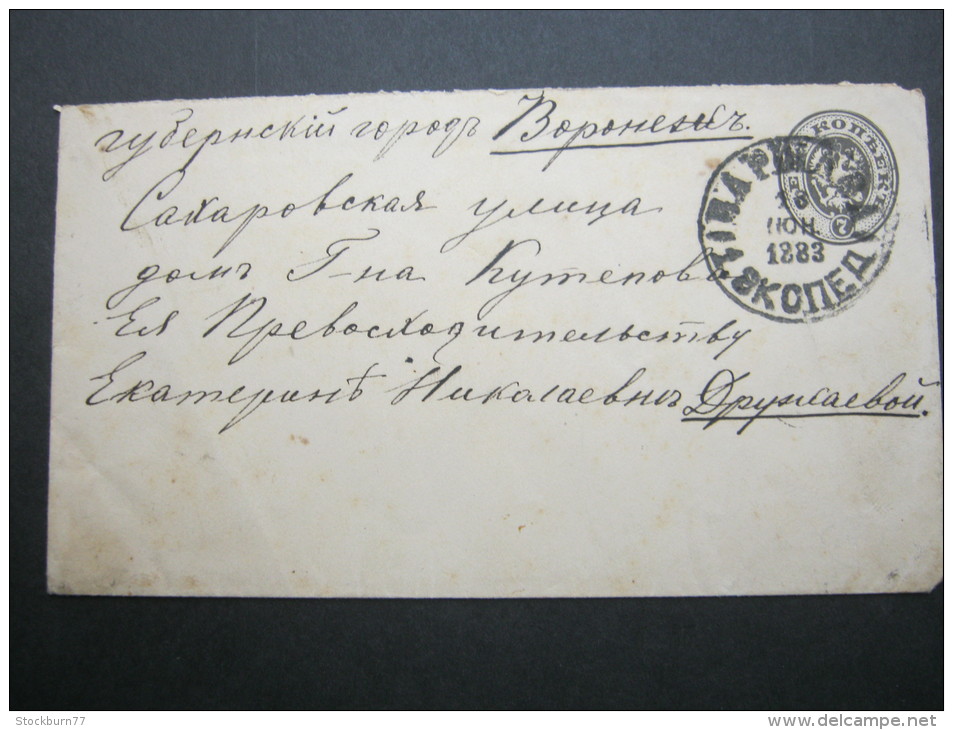 губернскій городъ Воронежъ.
Сахаровская улица
домъ Г-на Кутепова
Ея Превосходительству
Екатеринѣ Николаевнѣ Дружаевой.
КОПѢЕКЪ
7
ІЮН
1883
ЭКСПЕД
Stockburn77
www.delcampe.net